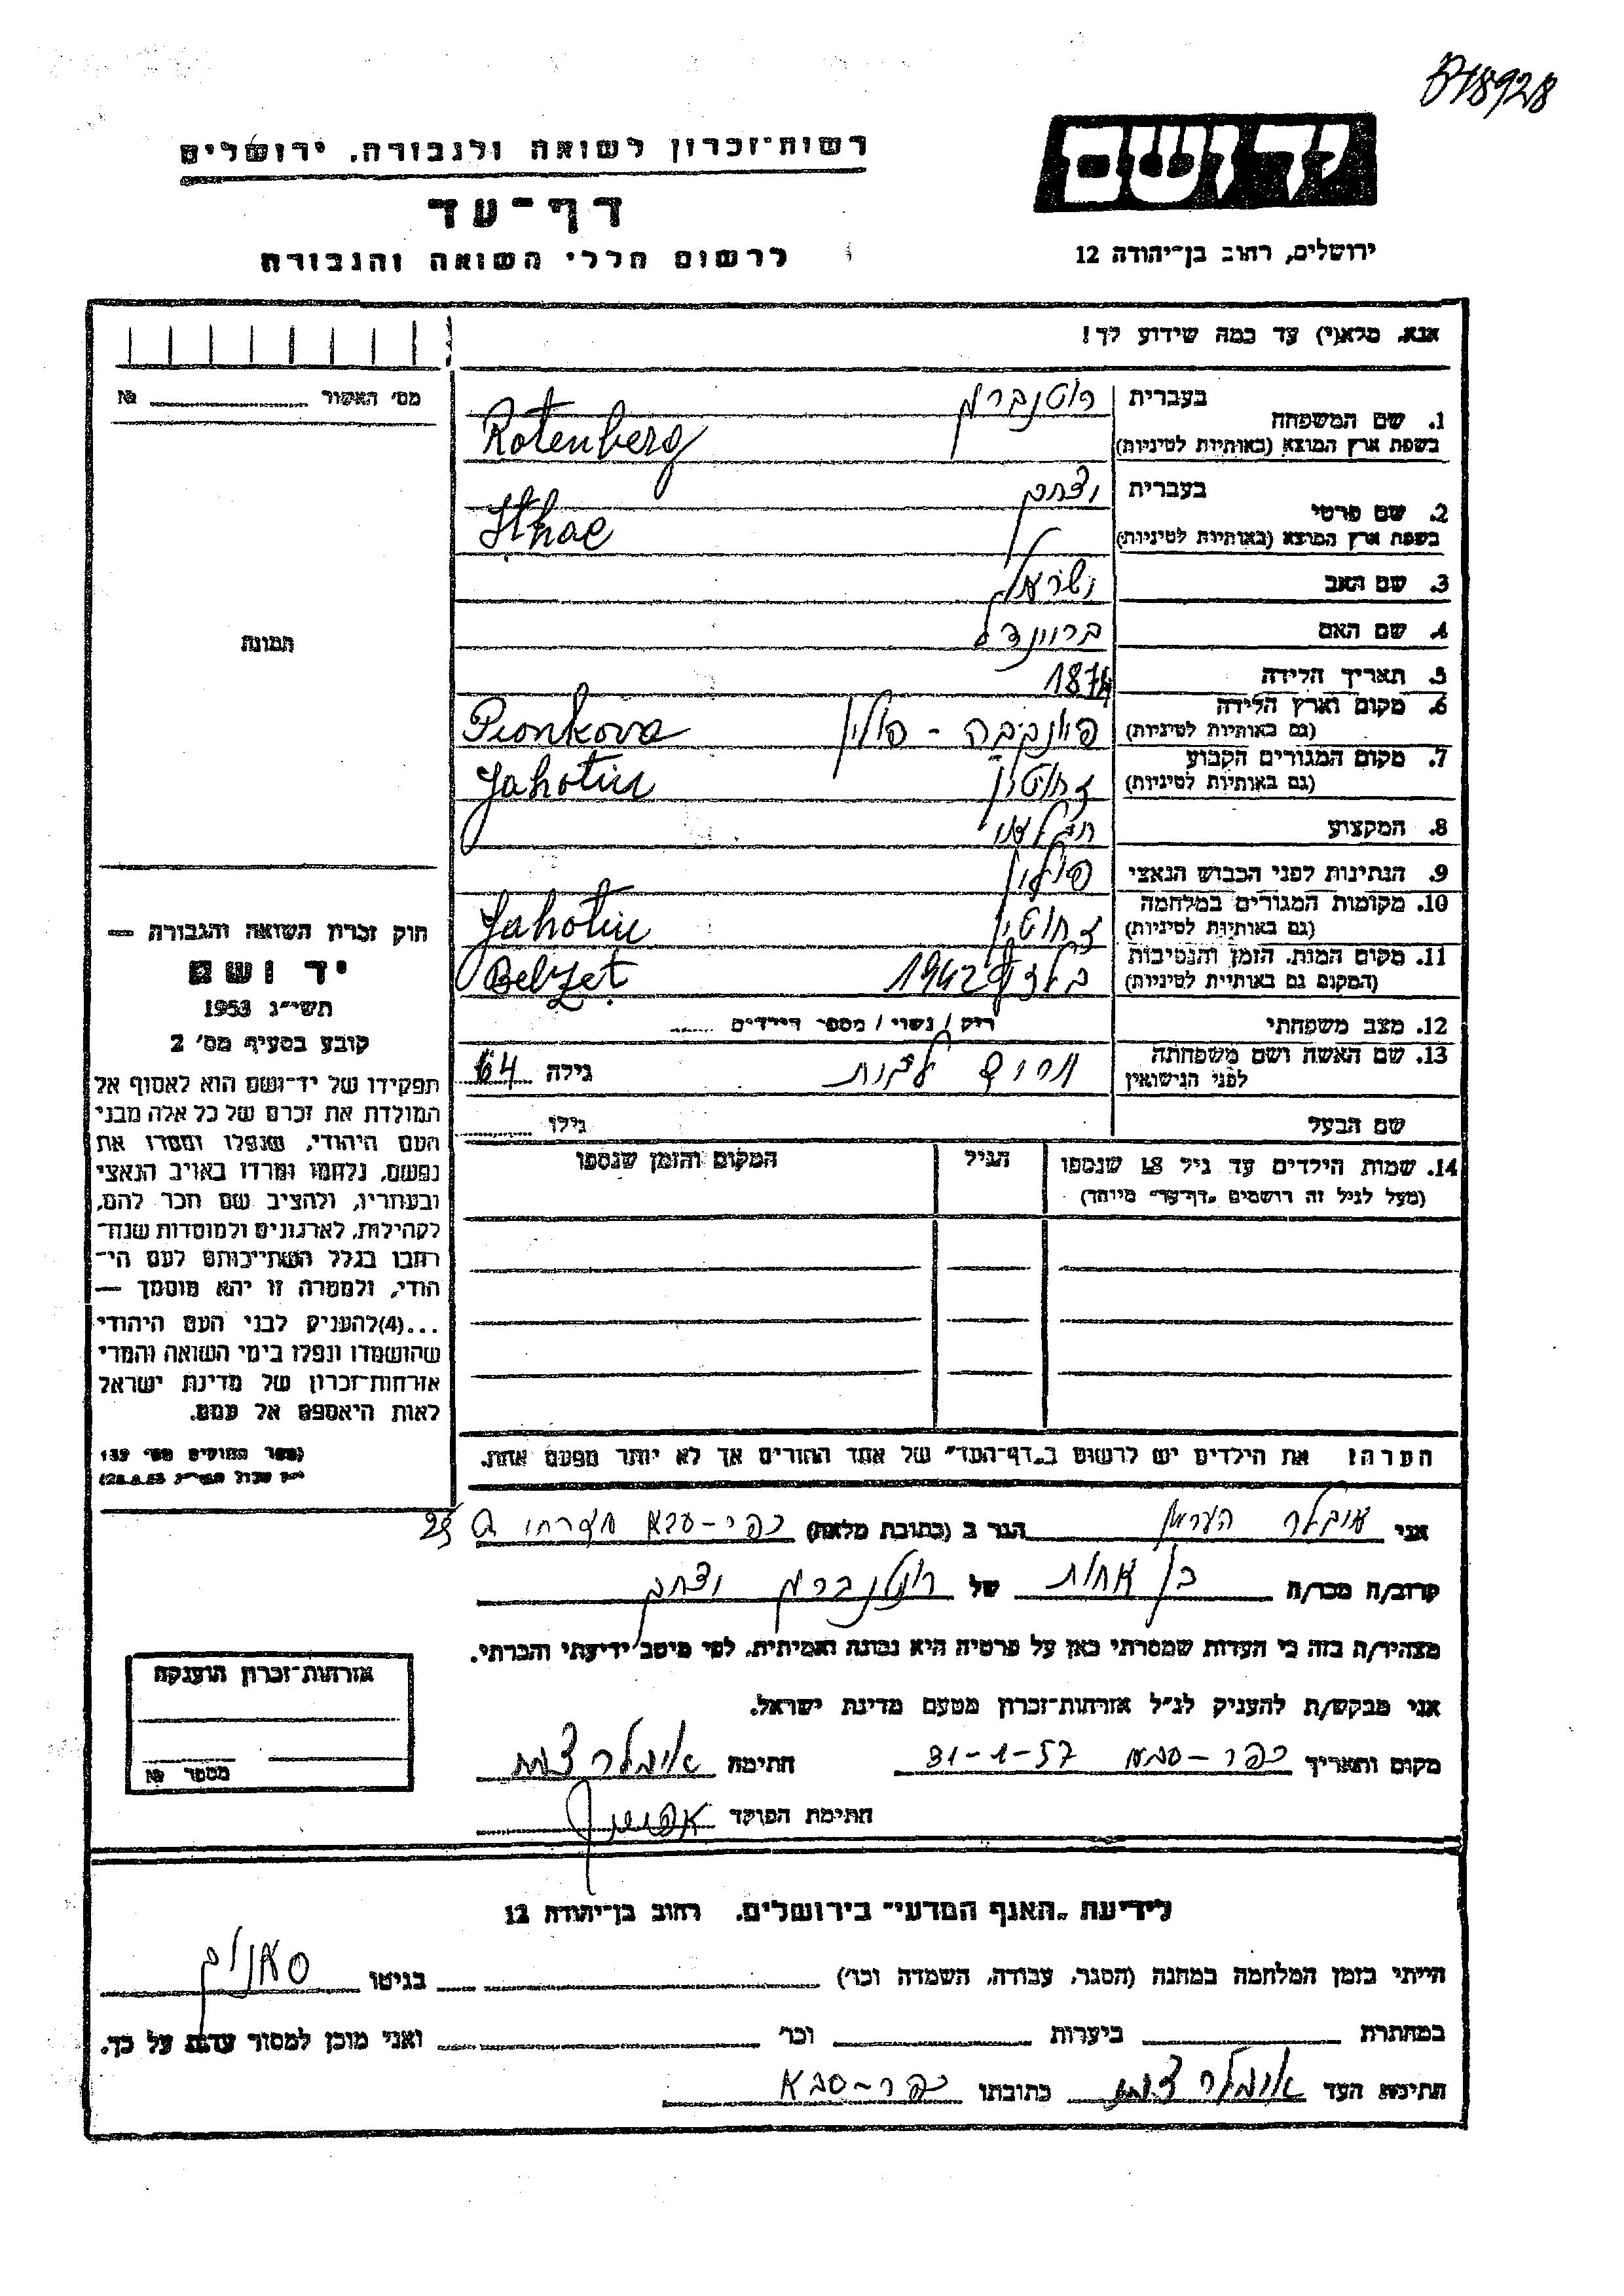 B18928
יד ושם
רשות־זכרון לשואה ולגבורה, ירושלים
דף־עד
לרשום חללי השואה והגבורה
ירושלים, רחוב בן־יהודה 12
אנא, מלא(י) עד כמה שידוע לך!
מס׳ האשור № 
1. שם המשפחה בעברית רוטנברג
בשפת ארץ המוצא (באותיות לטיניות) Rotenberg
2. שם פרטי בעברית יצחק
בשפת ארץ המוצא (באותיות לטיניות) Ithac
3. שם האב ישראל
4. שם האם בריינדל
5. תאריך הלידה 1874
6. מקום וארץ הלידה
(גם באותיות לטיניות) פיונקובה - פולין Pionkova
7. מקום המגורים הקבוע
(גם באותיות לטיניות) זחוטין Jahotin
8. המקצוע חקלאי
9. הנתינות לפני הכבוש הנאצי פולין
10. מקומות המגורים במלחמה
(גם באותיות לטיניות) זחוטין Jahotin
11. מקום המות, הזמן והנסיבות
(המקום גם באותיות לטיניות) 1942 Belzet
12. מצב משפחתי רווק / נשוי / מספר הילדים
13. שם האשה ושם משפחתה
לפני הנישואין גילה 64
שם הבעל גילו
14. שמות הילדים עד גיל 18 שנספו הגיל המקום והזמן שנספו
(מעל לגיל זה רושמים „דף־עד״ מיוחד)
הערה: את הילדים יש לרשום ב„דף־העד״ של אחד ההורים אך לא יותר מפעם אחת.
תמונה
חוק זכרון השואה והגבורה —
יד ושם
תשי״ג 1953
קובע בסעיף מס׳ 2
תפקידו של יד־ושם הוא לאסוף אל
המולדת את זכרם של כל אלה מבני
העם היהודי, שנפלו ומסרו את
נפשם, נלחמו ומרדו באויב הנאצי
ובעוזריו, ולהציב שם וזכר להם,
לקהילות, לארגונים ולמוסדות שנח־
רבו בגלל השתייכותם לעם הי־
הודי, ולמטרה זו יהא מוסמך —
...(4) להעניק לבני העם היהודי
שהושמדו ונפלו בימי השואה והמרי
אזרחות־זכרון של מדינת ישראל
לאות היאספם אל עמם.
(ספר החוקים מס׳ 132
אני הגר ב (כתובת מלאה) כפר-סבא
קרוב/ה מכר/ה בן אחות של רוטנברג יצחק
מצהיר/ה בזה כי העדות שמסרתי כאן על פרטיה היא נכונה ואמיתית, לפי מיטב ידיעתי והכרתי.
אני מבקש/ת להעניק לנ״ל אזרחות־זכרון מטעם מדינת ישראל.
מקום ותאריך כפר-סבא 31-1-57 חתימה
חתימת הפוקד
אזרחות־זכרון הוענקה
מספר №
לידיעת „האגף המדעי״ בירושלים, רחוב בן־יהודה 12
הייתי בזמן המלחמה במחנה (הסגר, עבודה, השמדה וכו׳) בגיטו
במחתרת ביערות וכו׳ ואני מוכן למסור עדות על כך.
חתימת העד כתובתו כפר-סבא